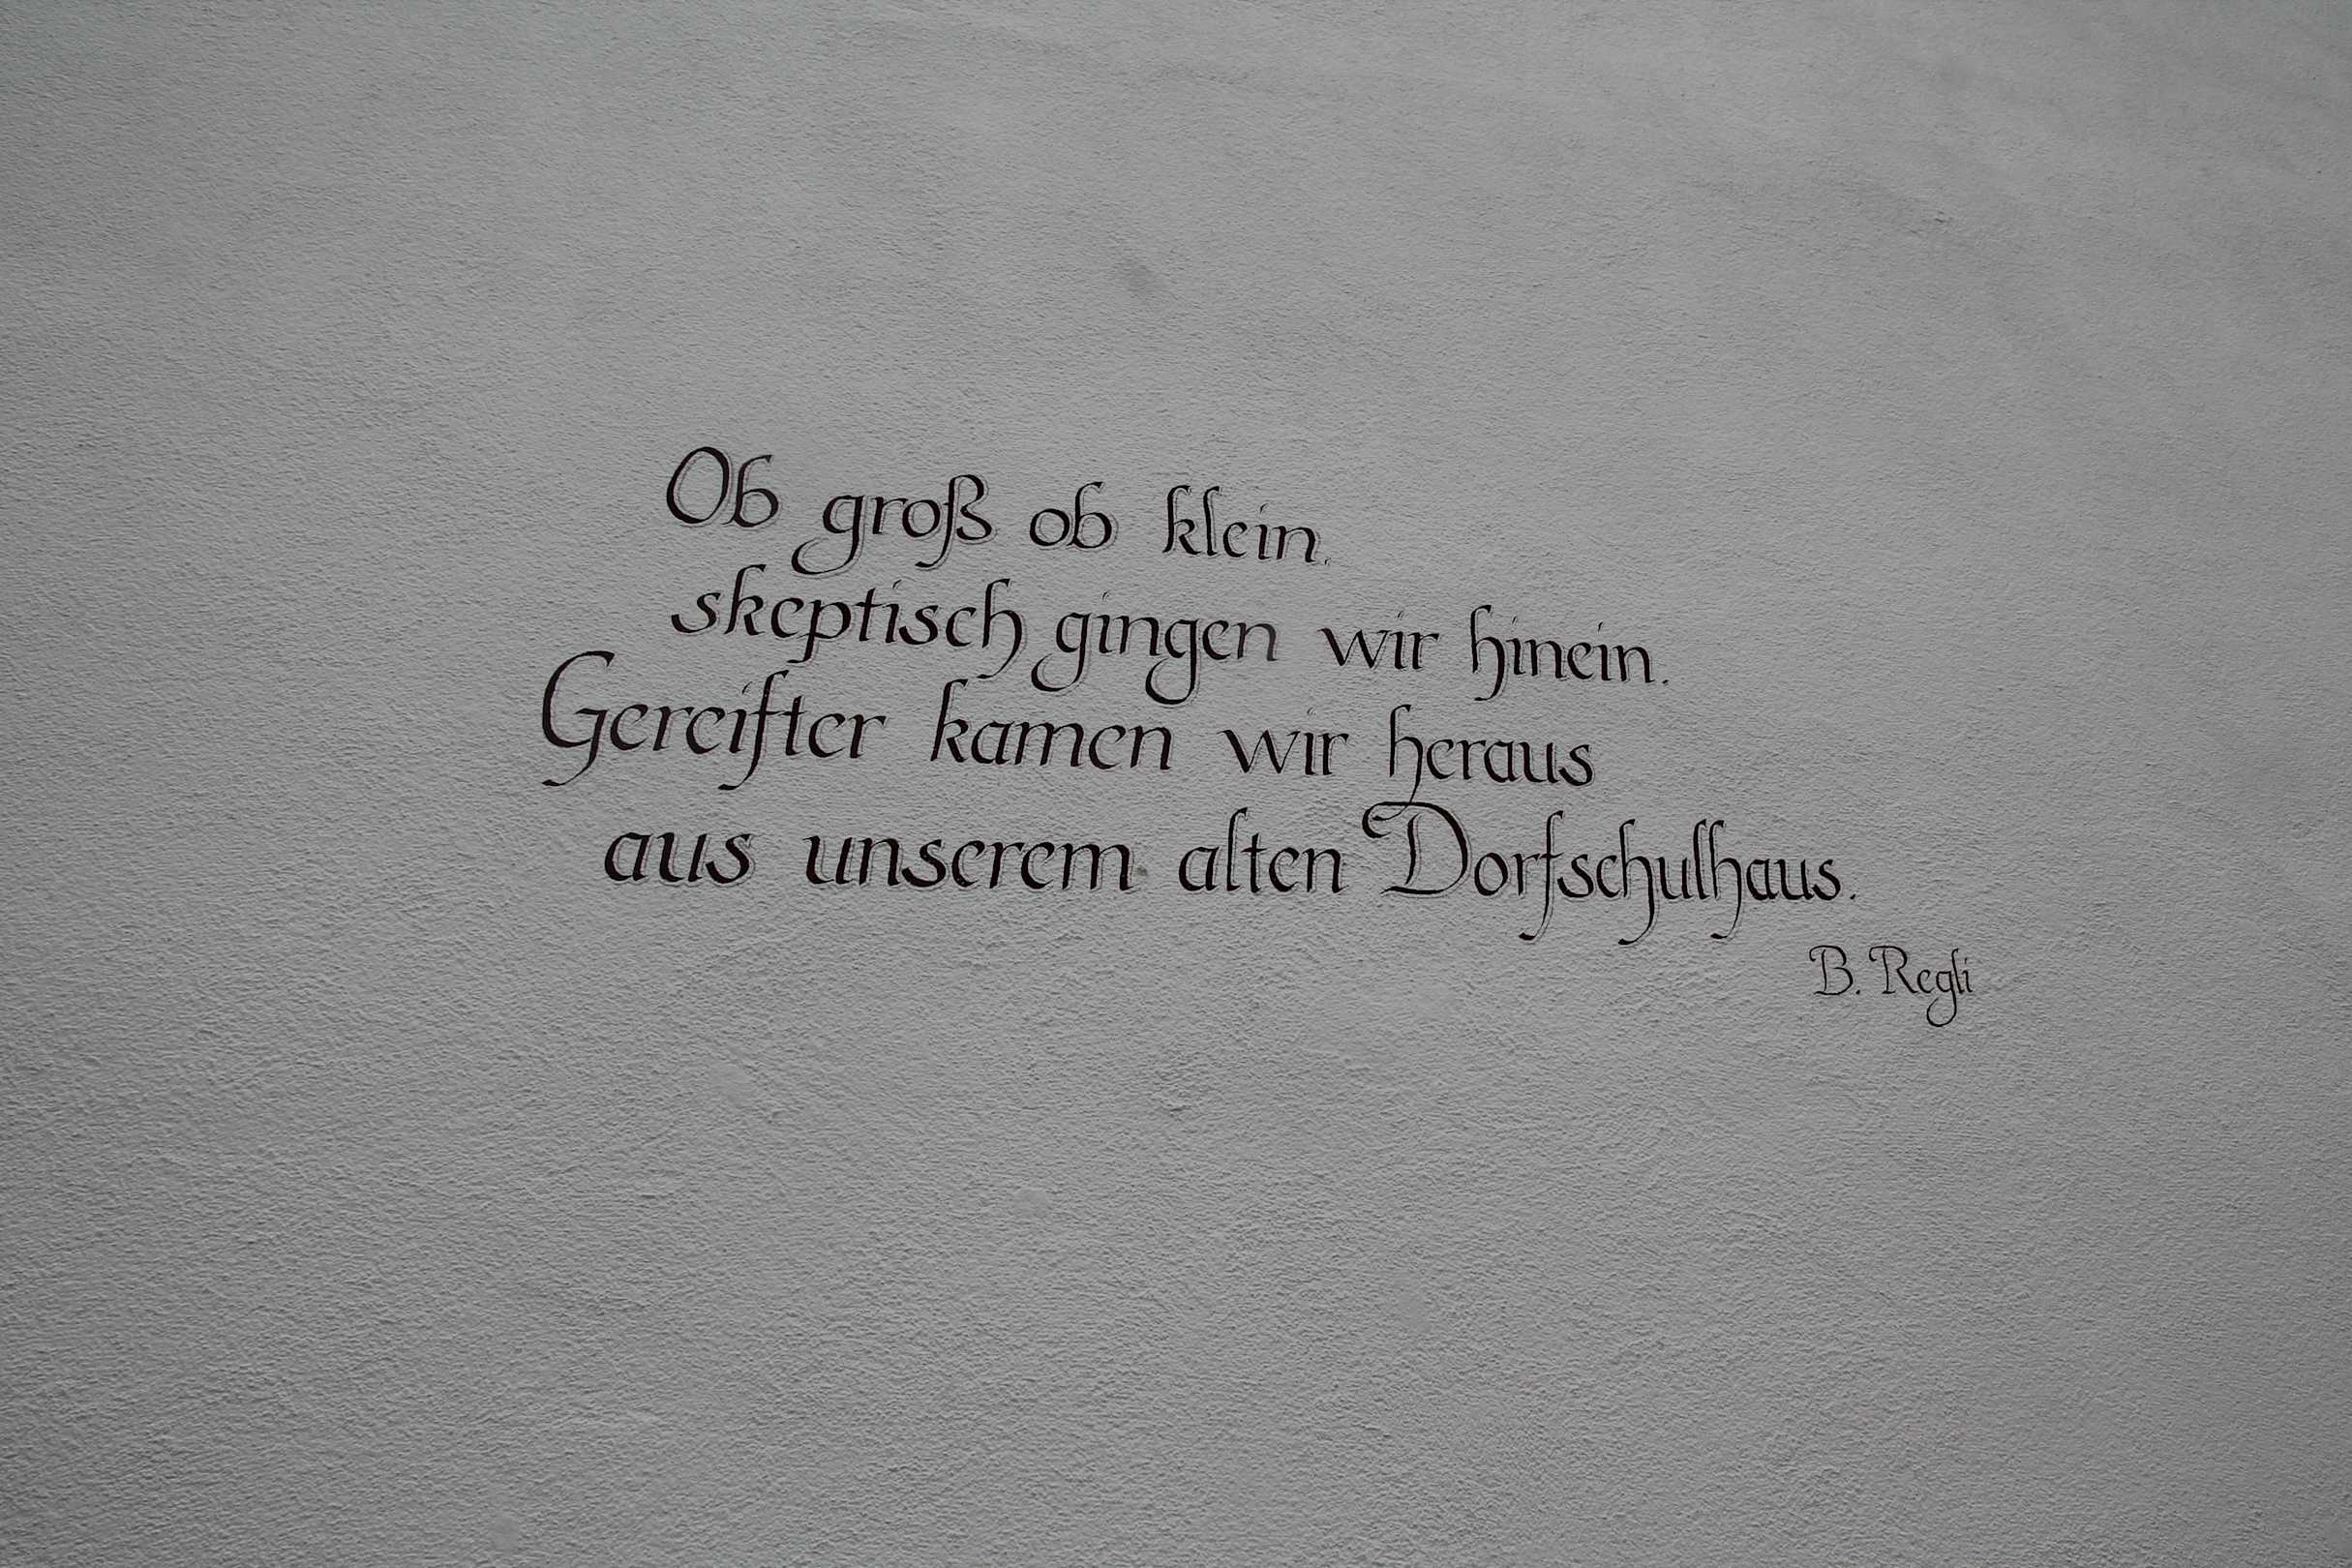 Ob groß ob klein,
skeptisch gingen wir hinein.
Gereifter kamen wir heraus
aus unserem alten Dorfschulhaus.
B. Regli